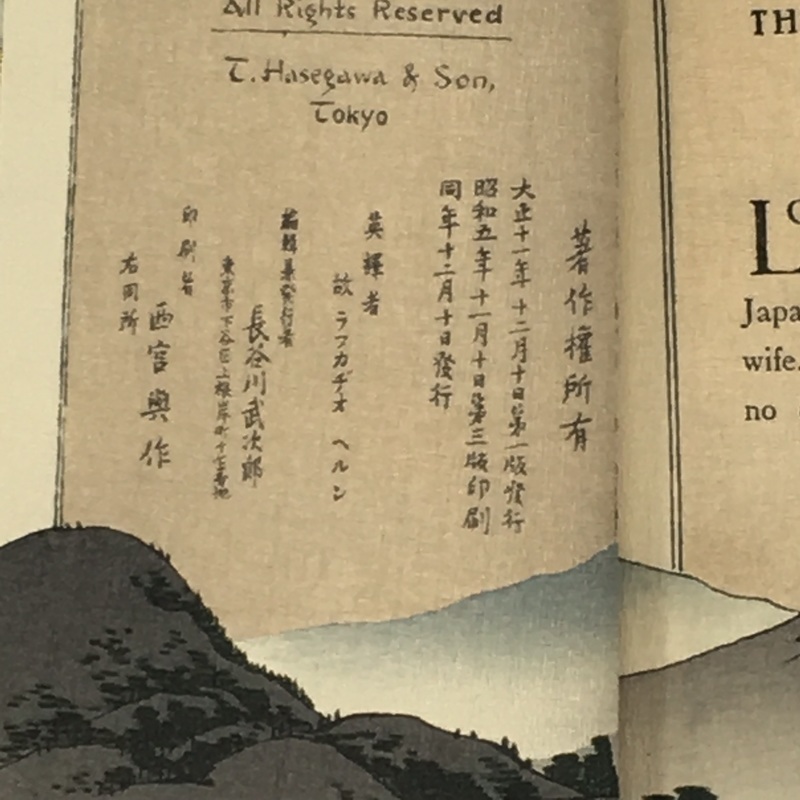 All Rights Reserved
T. Hasegawa & Son,
Tokyo
著作權所有
大正十一年十二月十日第一版發行
昭和五年十一月十日第三版印刷
同年十二月十日發行
英譯者
故ラフカヂオ ヘルン
編輯兼發行者
長谷川武次郎
東京市下谷區上根岸町十七番地
印刷者
西宮與作
右同所
TH
L
Japa
wife.
no